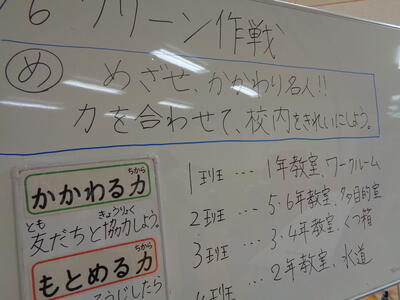 6 クリーン作戦
め めざせ、かかわり名人!!
力を合わせて、校内をきれいにしよう。
1班 … 1年教室、ワークルーム
2班 … 5・6年教室、多目的室
3班 … 3・4年教室、くつ箱
4班 … 2年教室、水道
ちから
かかわる力
とも きょうりょく
友だちと協力しよう。
ちから
もとめる力
そうじしたら